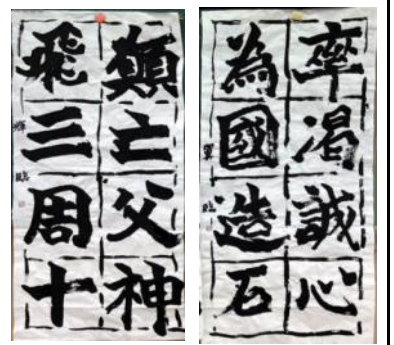 率渴誠心
為國造石
願亡父神
飛三周十